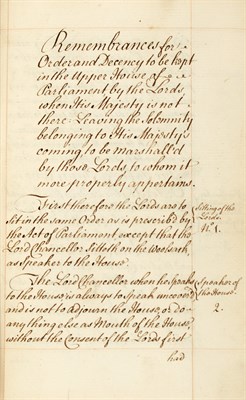 Remembrances for
Order and Decency to be kept
in the Upper House of
Parliament by the Lords,
when His Majesty is not
there: Leaving the Solemnity
belonging to His Majesty's
coming, to be marshall'd
by those Lords, to whom it
more properly appertains.
First therefore the Lords are to
Sit in the same Order as is prescrib'd by
the Act of Parliament except that the
Lord Chancellor Sitteth on the Woolsack
as Speaker to the House.
Sitting of the
Lords.
N.º 1.
The Lord Chancellor when he Speaks
to the House, is always to Speak uncover'd
and is not to Adjourn the House, or do
any thing else as Mouth of the House,
without the Consent of the Lords first
had
Speaker of
the House.
2.